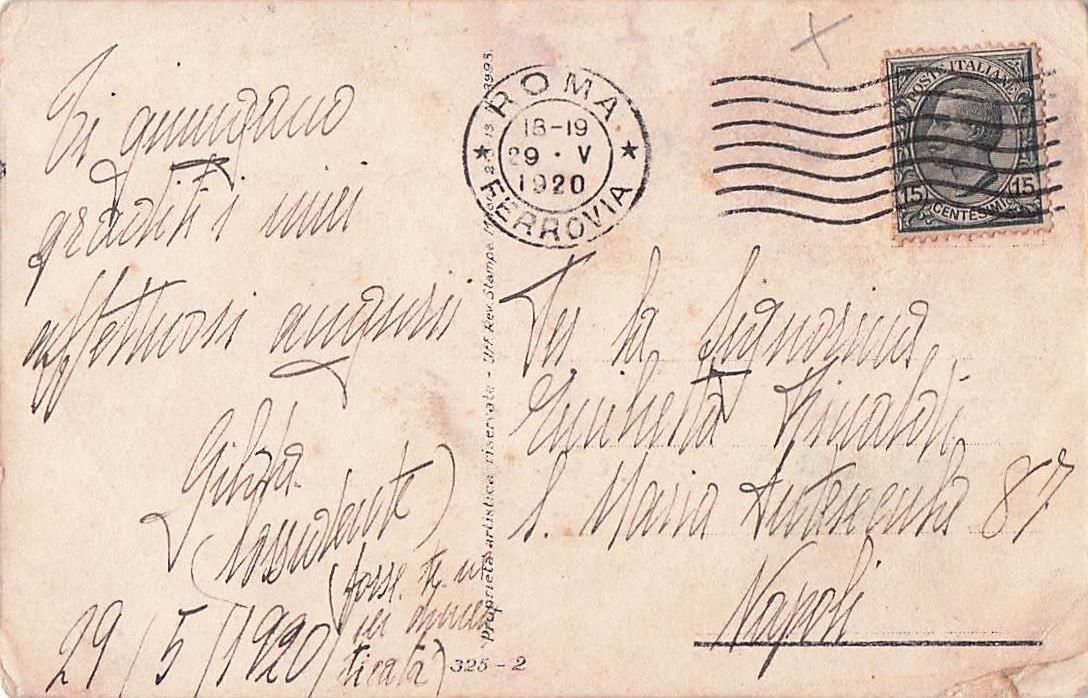 Ti giungano
graditi i miei
affettuosi auguri
Gilda
29/5/1920
(forse tu mi
ticata)
ROMA
18-19
29 · V
1920
FERROVIA
POSTE ITALIANE
15 15
CENTESIMI
Proprietà artistica riservata - Uff. Rev. Stampe
325-2
Per la Signorina
Enrichetta Rinaldi
S. Maria Antesecula 87
Napoli